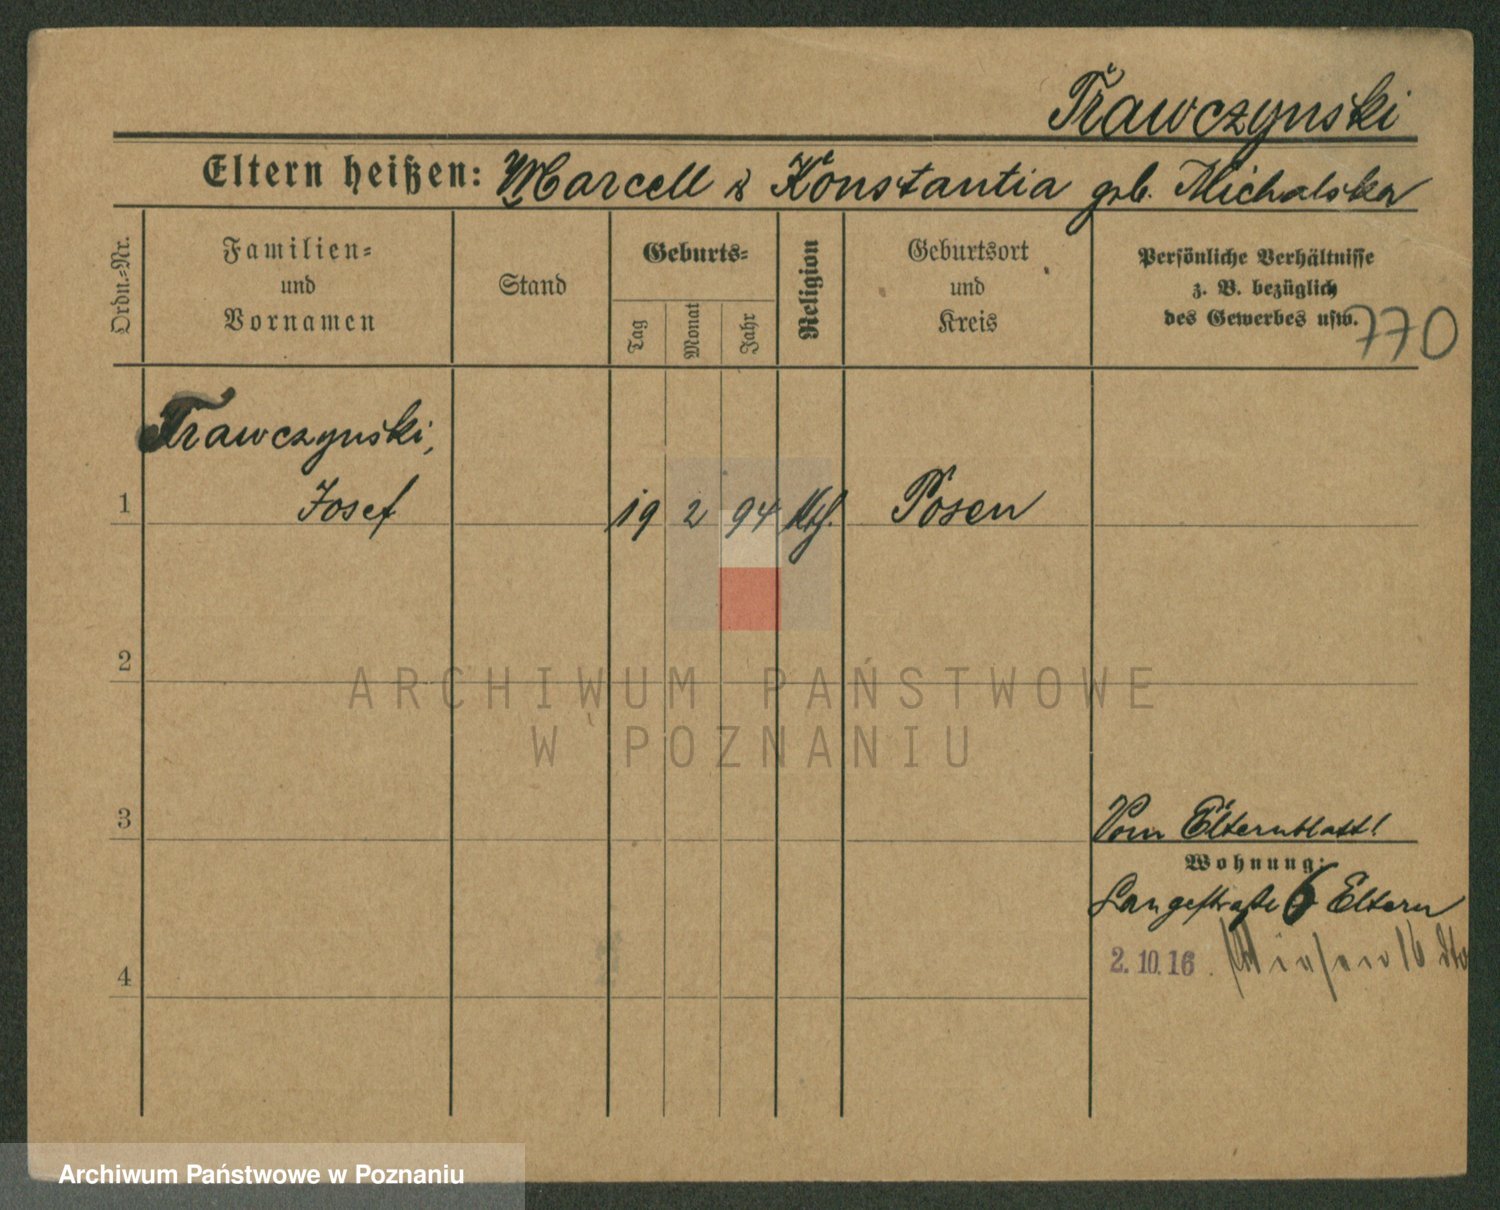 Trawczynski
Eltern heißen: Marcell & Konstantia geb. Michalska
Ordn.=Nr.
Familien=
und
Vornamen
Stand
Geburts=
Tag
Monat
Jahr
Religion
Geburtsort
und
Kreis
Persönliche Verhältnisse
z. B. bezüglich
des Gewerbes usw.
770
Trawczynski,
1 Josef 19 2 94 Kth. Posen
2
ARCHIWUM PAŃSTWOWE
W POZNANIU
3 Vom Elternblatt!
Wohnung:
Langestraße 6 Eltern
2.10.16.
4
Archiwum Państwowe w Poznaniu